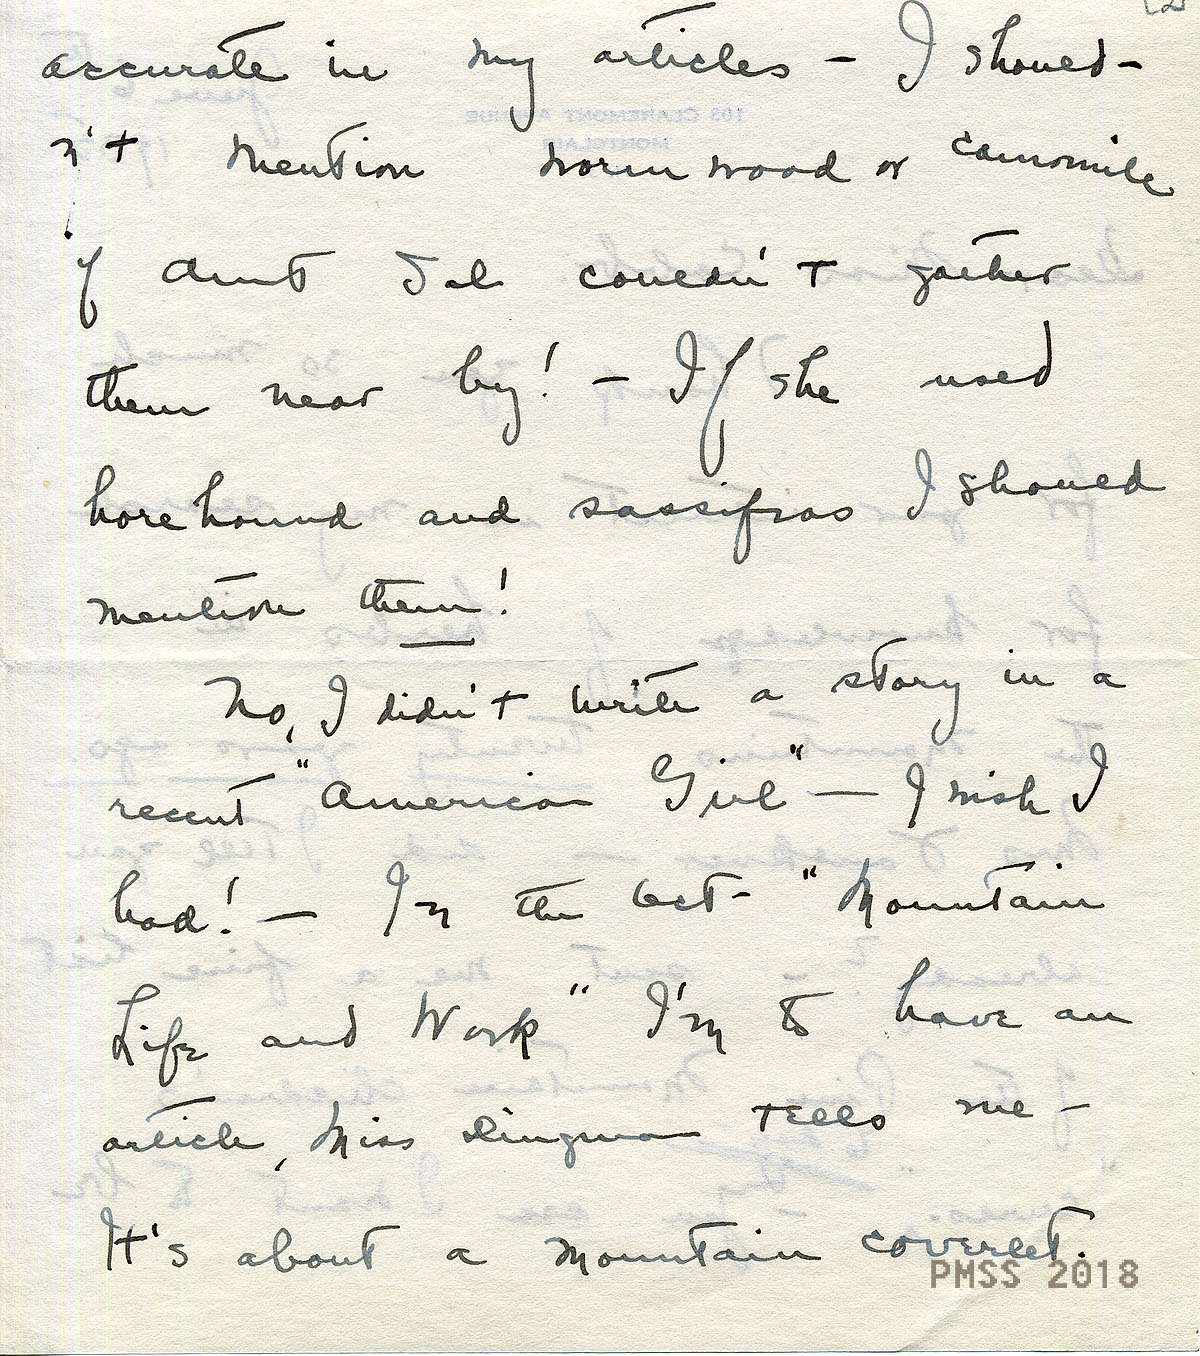 [2
accurate in my articles - I should-
n't mention wormwood or camomile
if Aunt Sal couldn't gather
them near by! - If she used
horehound and sassifras I should
mention them!
No, I didn't write a story in a
recent "American Girl" - I wish I
had! - In the Oct- "Mountain
Life and Work" I'm to have an
article, Miss Dingman tells me -
It's about a mountain coverlet.
PMSS 2018